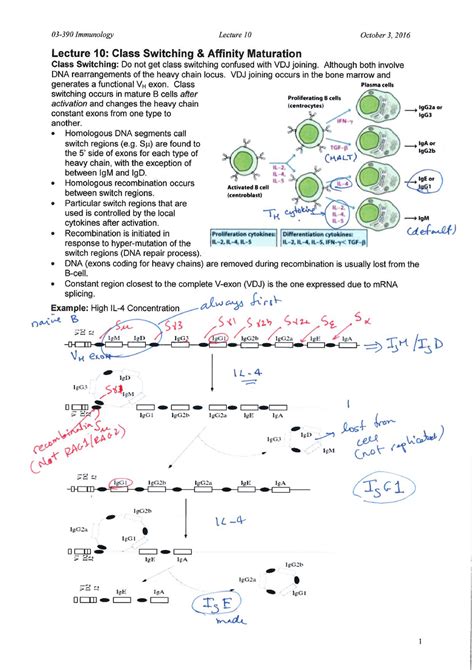 03-390 Immunology Lecture 10 October 3, 2016
Lecture 10: Class Switching & Affinity Maturation
Class Switching: Do not get class switching confused with VDJ joining. Although both involve
DNA rearrangements of the heavy chain locus. VDJ joining occurs in the bone marrow and
generates a functional VH exon. Class
switching occurs in mature B cells after
activation and changes the heavy chain
constant exons from one type to
another.
• Homologous DNA segments call
switch regions (e.g. Sμ) are found to
the 5' side of exons for each type of
heavy chain, with the exception of
between IgM and IgD.
• Homologous recombination occurs
between switch regions.
• Particular switch regions that are
used is controlled by the local
cytokines after activation.
• Recombination is initiated in
response to hyper-mutation of the
switch regions (DNA repair process).
Plasma cells
Proliferating B cells
(centrocytes)
IFN-γ
IgG2a or
IgG3
TGF-β
(MALT)
IgA or
IgG2b
IL-2,
IL-4,
IL-5
IL-4
IgE or
IgG1
Activated B cell
(centroblast)
TH cytokine
IL-2,
IL-4,
IL-5
IgM
(default)
Proliferation cytokines:
IL-2, IL-4, IL-5
Differentiation cytokines:
IL-2, IL-4, IL-5, IFN-γ, TGF-β
• DNA (exons coding for heavy chains) are removed during recombination is usually lost from the
B-cell.
• Constant region closest to the complete V-exon (VDJ) is the one expressed due to mRNA
splicing.
Example: High IL-4 Concentration
always first
naive B
Sμ Sγ3 Sγ1 Sγ2b Sγ2a Sε Sα
IgM IgD IgG3 IgG1 IgG2b IgG2a IgE IgA
⇒ IgM/IgD
VH exon
IL-4
IgD
IgG3 Sγ3 IgM
IgG1 IgG2b IgG2a IgE IgA
recombination Sμ
(Not RAG1/RAG2)
IgD
IgG3 IgM
lost from
cell
(not replicated)
IgG1 IgG2b IgG2a IgE IgA
IgG1
IgG2b
IL-4
IgG2a
IgG1
IgE IgA
IgG2b
IgG2a
IgG1
IgE IgA
IgE
made
1